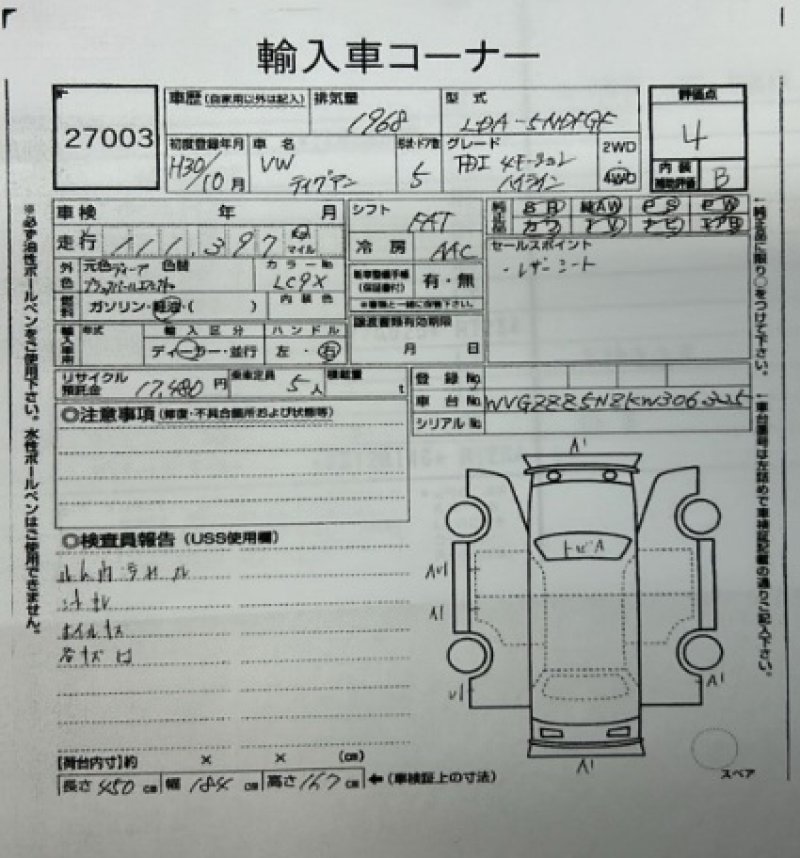 輸入車コーナー
27003
車歴(自家用以外は記入) 排気量 1968 型式 LDA-5NDFGF
評価点 4
初度登録年月 H30/10月 車名 VW ティグアン 形状・ドア数 5 グレード TDI 4モーション ハイライン 2WD・4WD
内装補助評価 B
車検 年 月
シフト FAT
純正品 SR 純AW PS PW
カワ TV ナビ エアB
走行 111,397 マイル
冷房 AAC
セールスポイント
・レザーシート
外色 元色 ディープブラックパールエフェクト 色替 カラーNo LC9X
新車整備手帳(保証書付) 有・無
※書類と一緒に保管下さい。
燃料 ガソリン・軽油・( ) 内装色
譲渡書類有効期限
月 日
輸入車用 年式 輸入区分 ディーラー・並行 ハンドル 左・右
リサイクル預託金 17,480円 乗車定員 5人 積載量 t
登録No
車台No WVGZZZ5NZKW306325
シリアルNo
◎注意事項(修復・不具合箇所および状態等)
◎検査員報告(USS使用欄)
ホイルキズ
各キズ凹
A1
トビA
AU1
A1
U1
A1
A1
スペア
[荷台内寸]約 × × (cm)
長さ450cm 幅184cm 高さ167cm ←(車検証上の寸法)
※必ず油性ボールペンをご使用下さい。水性ボールペンはご使用できません。
↑純正品に限り○をつけて下さい。
↑車台番号は左詰めで車検証記載の通りご記入下さい。